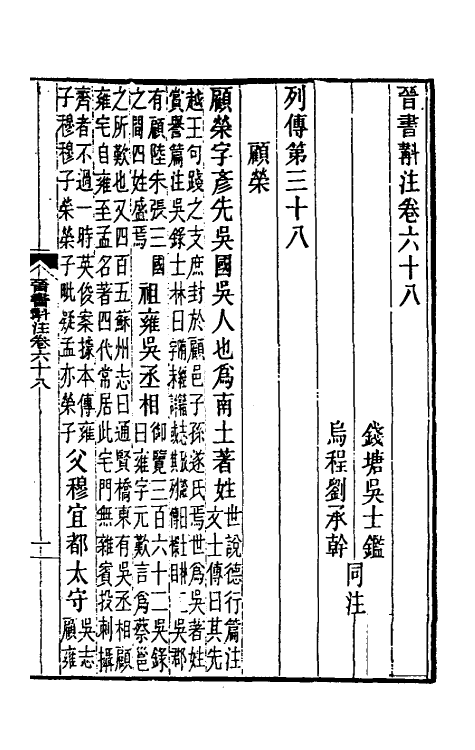 晉書斠注卷六十八
錢塘吳士鑑
烏程劉承幹
同注
列傳第三十八
顧榮
顧榮字彥先吳國吳人也爲南土著姓世說德行篇注文士傳曰其先
越王句踐之支庶封於顧邑子孫遂氏焉世爲吳著姓
賞譽篇注吳錄士林曰吳郡
有顧陸朱張三國之間四姓盛焉祖雍吳丞相御覽三百六十二吳錄曰雍字元歎言爲蔡邕
之所歎也又四百五蘇州志曰通賢橋東有吳丞相顧
雍宅自雍至孟名著四代常居此宅門無雜賓投刺攝
齊者不過一時英俊案據本傳雍子穆穆子榮榮子毗疑孟亦榮子父穆宜都太守吳志顧雍
晉書斠注卷六十八
一